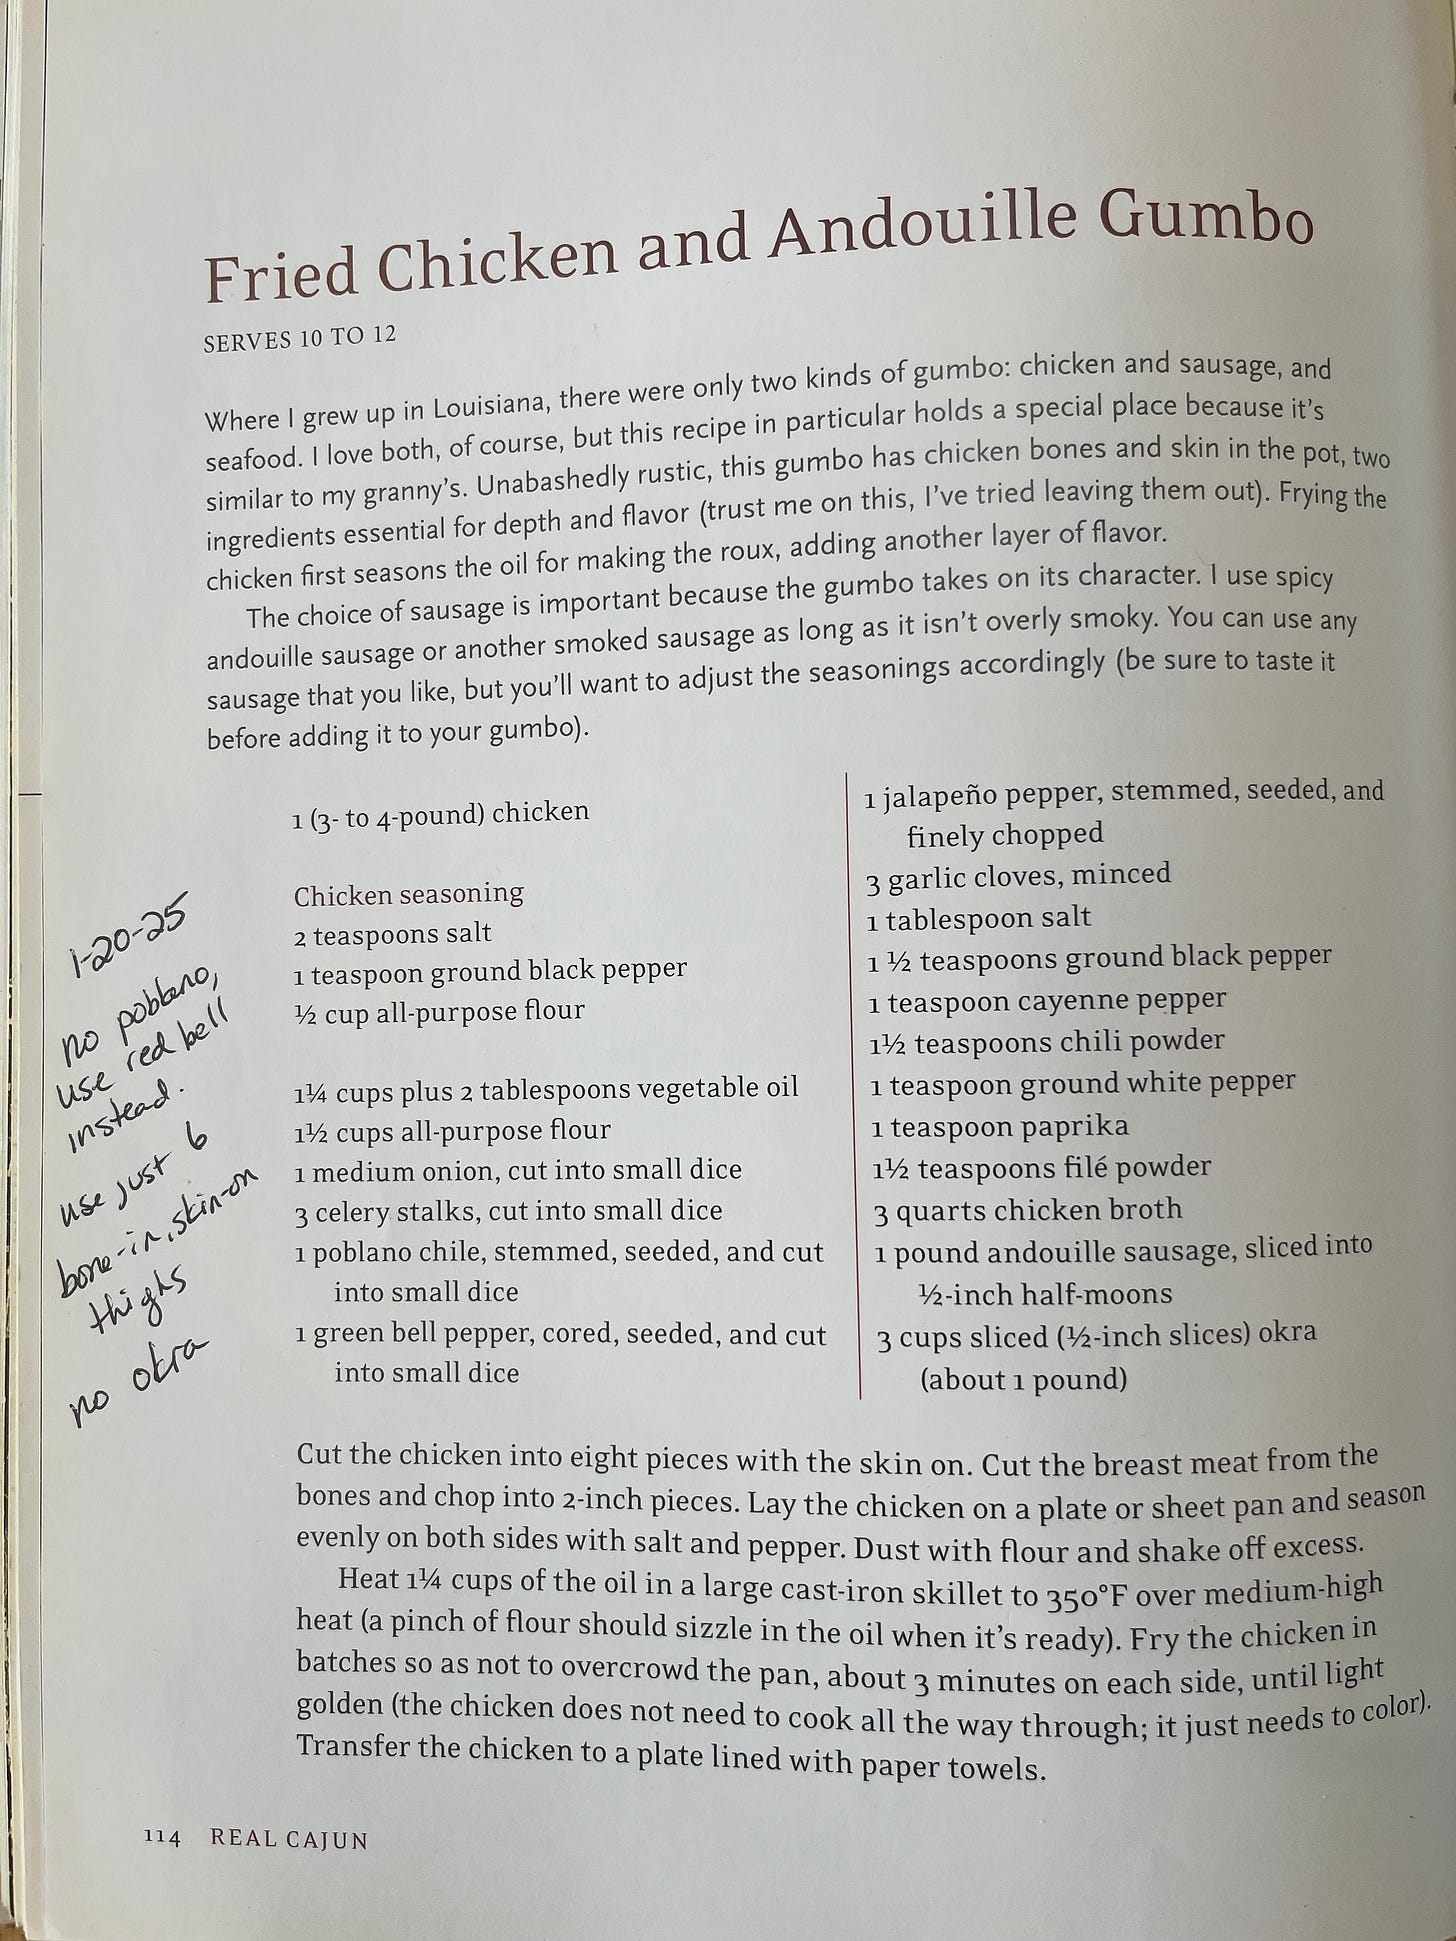 Fried Chicken and Andouille Gumbo
SERVES 10 TO 12
Where I grew up in Louisiana, there were only two kinds of gumbo: chicken and sausage, and
seafood. I love both, of course, but this recipe in particular holds a special place because it's
similar to my granny's. Unabashedly rustic, this gumbo has chicken bones and skin in the pot, two
ingredients essential for depth and flavor (trust me on this, I've tried leaving them out). Frying the
chicken first seasons the oil for making the roux, adding another layer of flavor.
The choice of sausage is important because the gumbo takes on its character. I use spicy
andouille sausage or another smoked sausage as long as it isn't overly smoky. You can use any
sausage that you like, but you'll want to adjust the seasonings accordingly (be sure to taste it
before adding it to your gumbo).
1-20-25
no poblano,
use red bell
instead.
use just 6
bone-in, skin-on
thighs
no okra
1 (3- to 4-pound) chicken
Chicken seasoning
2 teaspoons salt
1 teaspoon ground black pepper
½ cup all-purpose flour
1¼ cups plus 2 tablespoons vegetable oil
1½ cups all-purpose flour
1 medium onion, cut into small dice
3 celery stalks, cut into small dice
1 poblano chile, stemmed, seeded, and cut
into small dice
1 green bell pepper, cored, seeded, and cut
into small dice
1 jalapeño pepper, stemmed, seeded, and
finely chopped
3 garlic cloves, minced
1 tablespoon salt
1 ½ teaspoons ground black pepper
1 teaspoon cayenne pepper
1½ teaspoons chili powder
1 teaspoon ground white pepper
1 teaspoon paprika
1½ teaspoons filé powder
3 quarts chicken broth
1 pound andouille sausage, sliced into
½-inch half-moons
3 cups sliced (½-inch slices) okra
(about 1 pound)
Cut the chicken into eight pieces with the skin on. Cut the breast meat from the
bones and chop into 2-inch pieces. Lay the chicken on a plate or sheet pan and season
evenly on both sides with salt and pepper. Dust with flour and shake off excess.
Heat 1¼ cups of the oil in a large cast-iron skillet to 350°F over medium-high
heat (a pinch of flour should sizzle in the oil when it's ready). Fry the chicken in
batches so as not to overcrowd the pan, about 3 minutes on each side, until light
golden (the chicken does not need to cook all the way through; it just needs to color).
Transfer the chicken to a plate lined with paper towels.
114 REAL CAJUN